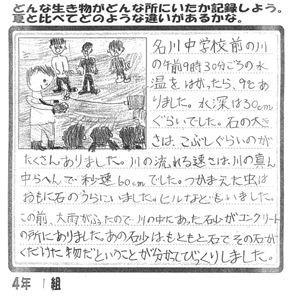 どんな生き物がどんな所にいたか記録しよう。
夏と比べてどのような違いがあるかな。
名川中学校前の川
の午前9時30分ごろの水
温をはかったら、9℃あ
りました。水深は30cm
ぐらいでした。石の大き
さは、こぶしぐらいのが
たくさんありました。川の流れる速さは川の真ん
中らへんで秒速60cmでした。つかまえた虫は
おもに石のうらにいました。ヒルなどもいました。
この前、大雨がふったので川の中にあった石や砂がコンクリート
の所にありました。あの石や砂は、もともと石でその石が
くだけた物だということが分かってびっくりしました。
4年 1組